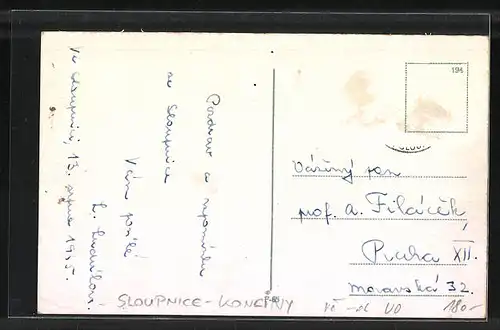 Pozdrav a vzpomínku
ze Sloupnice
Vám posílá
L.
Ve Sloupnici, 13. srpna 1955.
194
Vážený pan
prof. A. Filáček,
Praha XII.
Moravská 32.
SLOUPNICE - KONČINY
180-